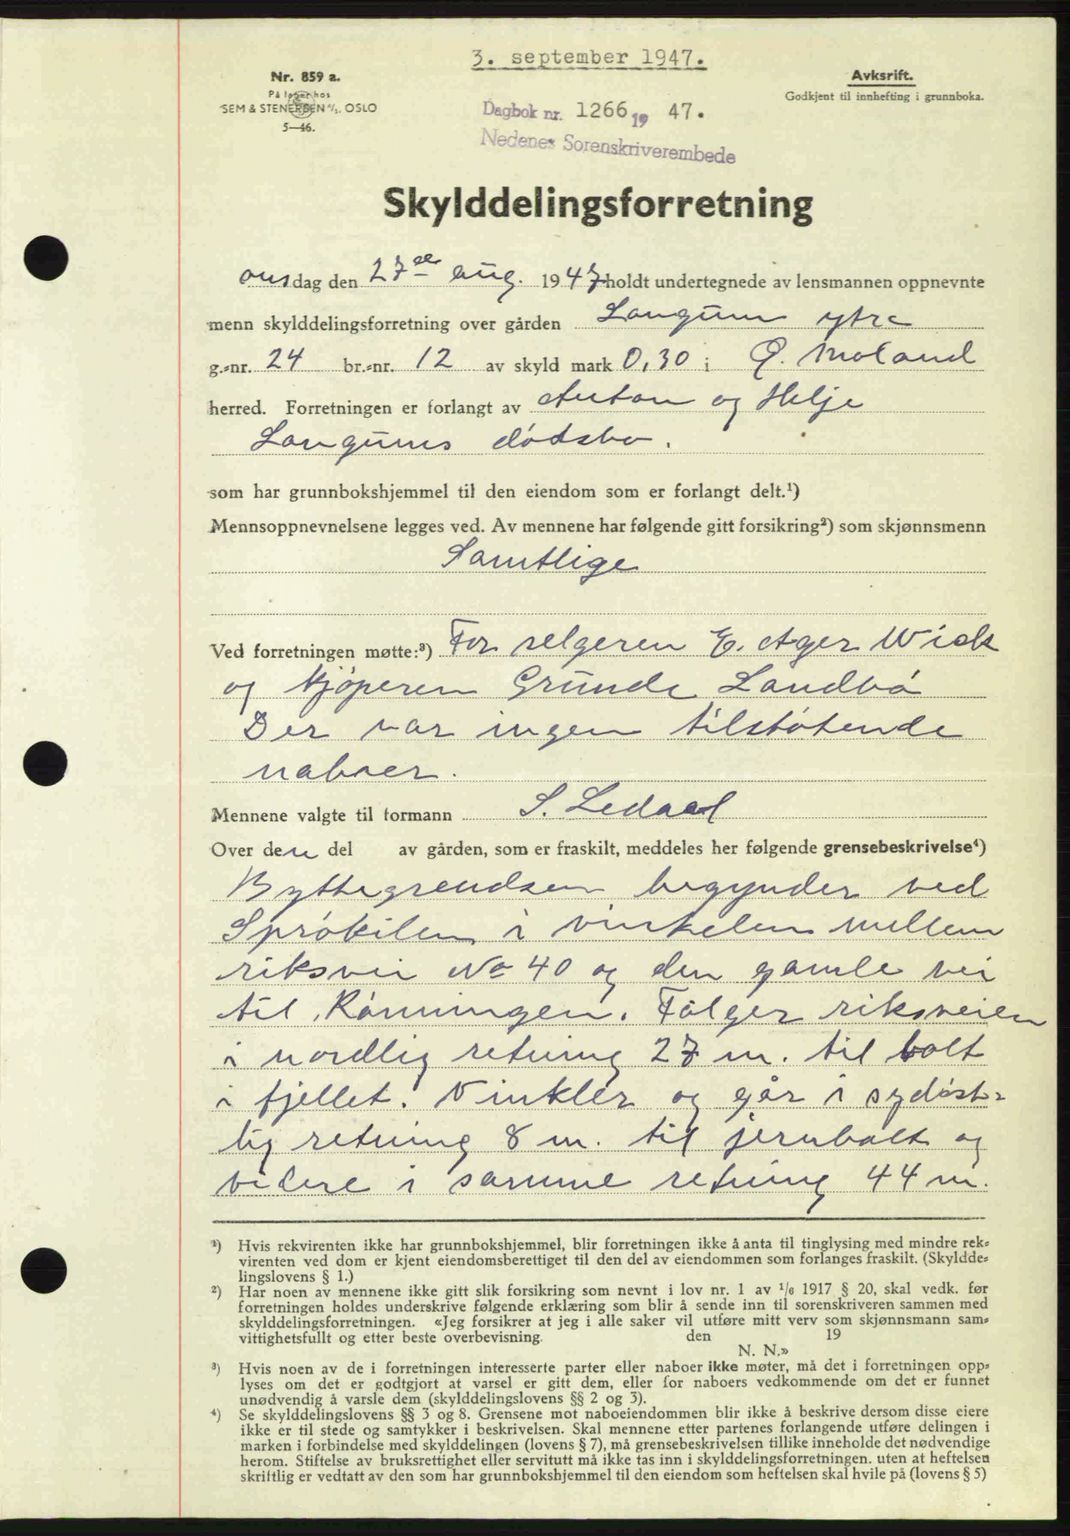 3. september 1947.
Nr. 859 a.
På lager hos
SEM & STENERSEN A/S. OSLO
5—46.
Avksrift.
Godkjent til innhefting i grunnboka.
Dagbok nr. 1266 19 47.
Nedenes Sorenskriverembede
Skylddelingsforretning
onsdag den 27de aug. 1947 holdt undertegnede av lensmannen oppnevnte
menn skylddelingsforretning over gården Langum ytre
g.-nr. 24 br.-nr. 12 av skyld mark 0,30 i Ø. Moland
herred. Forretningen er forlangt av Anton og Helje
Langums dødsbo.
som har grunnbokshjemmel til den eiendom som er forlangt delt.¹)
Mennsoppnevnelsene legges ved. Av mennene har følgende gitt forsikring²) som skjønnsmenn
Samtlige
Ved forretningen møtte:³) For selgeren E. Ager Wick
og kjøperen Grunde Landbö
Der var ingen tilstøtende
naboer.
Mennene valgte til formann S. Ledaal
Over den del av gården, som er fraskilt, meddeles her følgende grensebeskrivelse⁴)
Byttegrendsen begynder ved
Sprökilen i vinkelen mellem
riksvei No 40 og den gamle vei
til Rönningen. Fölger riksveien
i nordlig retning 27 m. til bolt
i fjellet. Vinkler og går i sydöst-
lig retning 8 m. til jernbolt og
videre i samme retning 44 m.
¹) Hvis rekvirenten ikke har grunnbokshjemmel, blir forretningen ikke å anta til tinglysing med mindre rek-
virenten ved dom er kjent eiendomsberettiget til den del av eiendommen som forlanges fraskilt. (Skyldde-
lingslovens § 1.)
²) Har noen av mennene ikke gitt slik forsikring som nevnt i lov nr. 1 av 1/6 1917 § 20, skal vedk. før
forretningen holdes underskrive følgende erklæring som blir å sende inn til sorenskriveren sammen med
skylddelingsforretningen. «Jeg forsikrer at jeg i alle saker vil utføre mitt verv som skjønnsmann sam-
vittighetsfullt og etter beste overbevisning. den 19
N. N.»
³) Hvis noen av de i forretningen interesserte parter eller naboer ikke møter, må det i forretningen opp-
lyses om det er godtgjort at varsel er gitt dem, eller for naboers vedkommende om det er funnet
unødvendig å varsle dem (skylddelingslovens §§ 2 og 3).
⁴) Se skylddelingslovens §§ 3 og 8. Grensene mot naboeiendommen blir ikke å beskrive dersom disse eiere
ikke er til stede og samtykker i beskrivelsen. Skal mennene etter partenes forlangende utføre delingen i
marken i forbindelse med skylddelingen (lovens § 7), må grensebeskrivelsen tillike inneholde det nødvendige
herom. Stiftelse av bruksrettighet eller servitutt må ikke tas inn i skylddelingsforretningen. uten at heftelsen
skriftlig er vedtatt av den som har grunnbokshjemmel til den eiendom som heftelsen skal hvile på (lovens § 5)